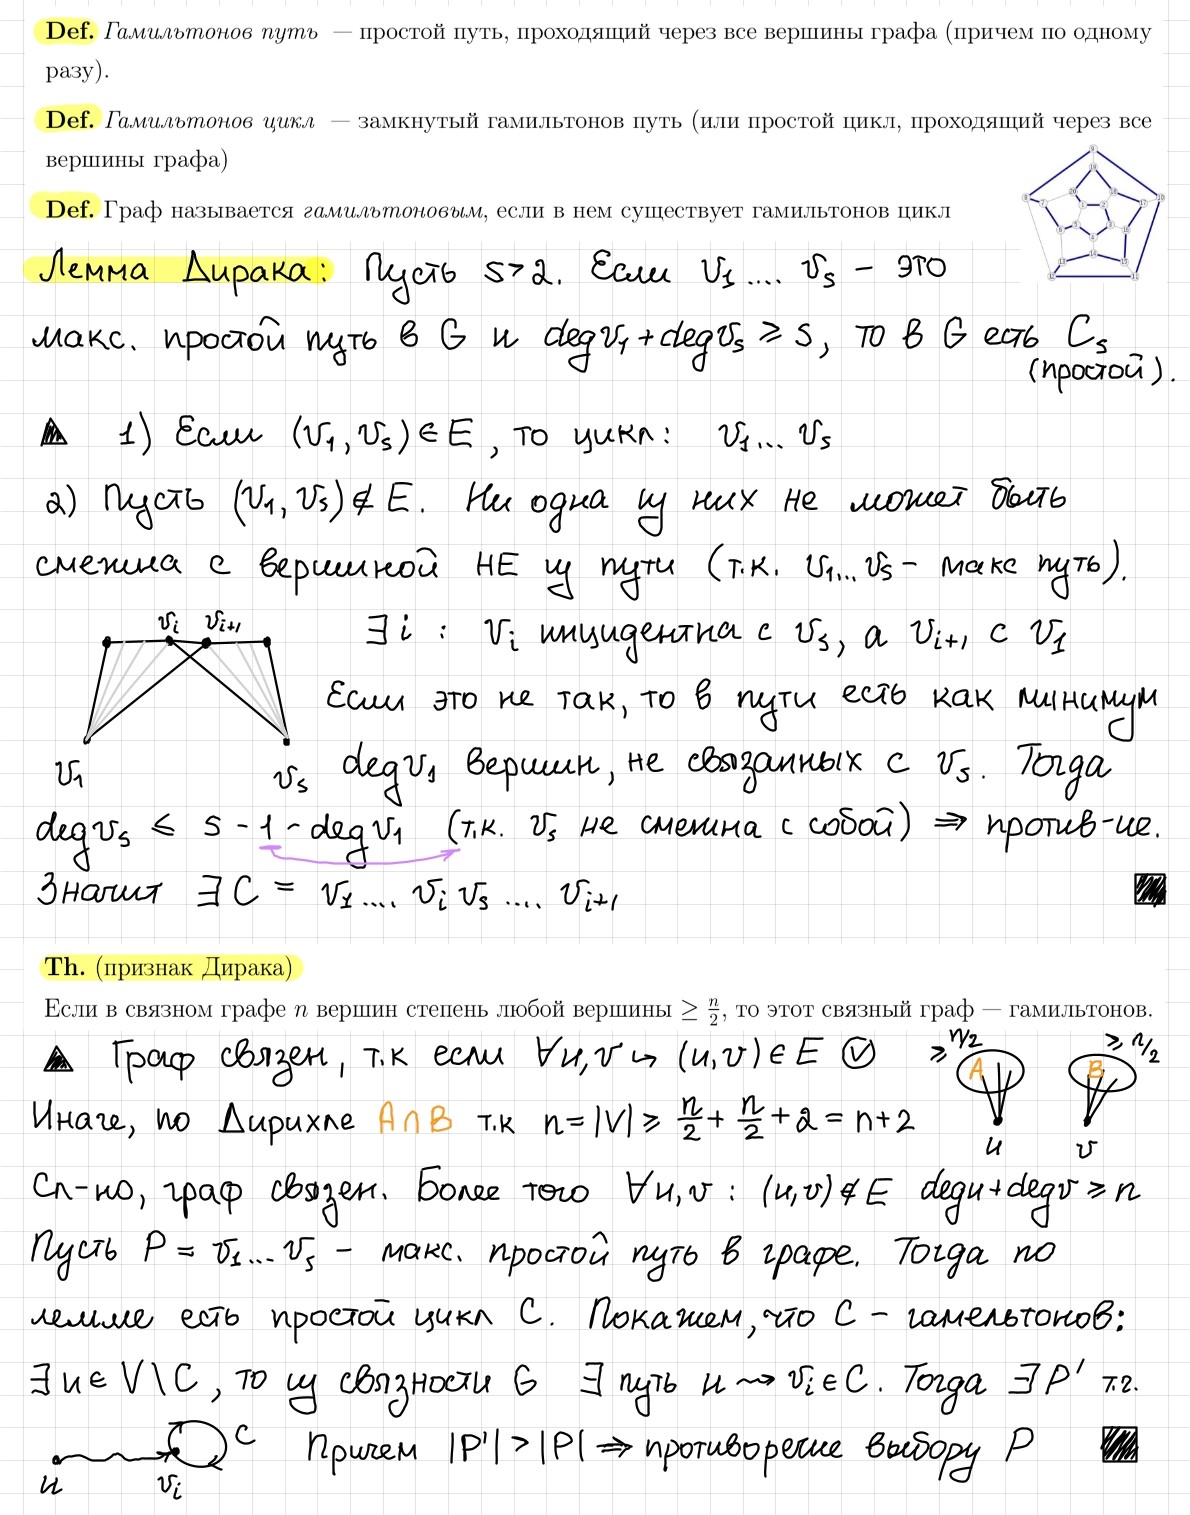 Def. Гамильтонов путь — простой путь, проходящий через все вершины графа (причем по одному
разу).
Def. Гамильтонов цикл — замкнутый гамильтонов путь (или простой цикл, проходящий через все
вершины графа)
Def. Граф называется гамильтоновым, если в нем существует гамильтонов цикл
Лемма Дирака: Пусть s>2. Если v₁.... vₛ – это
макс. простой путь в G и deg v₁ + deg vₛ ≥ s, то в G есть Cₛ
(простой).
1) Если (v₁, vₛ) ∈ E, то цикл: v₁... vₛ
2) Пусть (v₁, vₛ) ∉ E. Ни одна из них не может быть
смежна с вершиной НЕ из пути (т.к. v₁...vₛ – макс путь).
vᵢ vᵢ₊₁
∃ i : vᵢ инцидентна с vₛ, а vᵢ₊₁ с v₁
Если это не так, то в пути есть как минимум
v₁ vₛ deg v₁ вершин, не связанных с vₛ. Тогда
deg vₛ ≤ s - 1 - deg v₁ (т.к. vₛ не смежна с собой) ⇒ против-ие.
Значит ∃ C = v₁.... vᵢ vₛ .... vᵢ₊₁
Th. (признак Дирака)
Если в связном графе n вершин степень любой вершины ≥ n/2, то этот связный граф — гамильтонов.
Граф связен, т.к если ∀u,v ↪ (u,v) ∈ E V
≥ n/2 ≥ n/2
A B
Иначе, по Дирихле A∩B т.к n=|V| ≥ n/2 + n/2 + 2 = n+2
u v
Сл-но, граф связен. Более того ∀u,v : (u,v) ∉ E deg u + deg v ≥ n
Пусть P = v₁... vₛ – макс. простой путь в графе. Тогда по
лемме есть простой цикл C. Покажем, что C – гамельтонов:
∃ u ∈ V\C, то из связности G ∃ путь u ⇝ vᵢ ∈ C. Тогда ∃ P' т.г.
C Причем |P'| > |P| ⇒ противоречие выбору P
u vᵢ